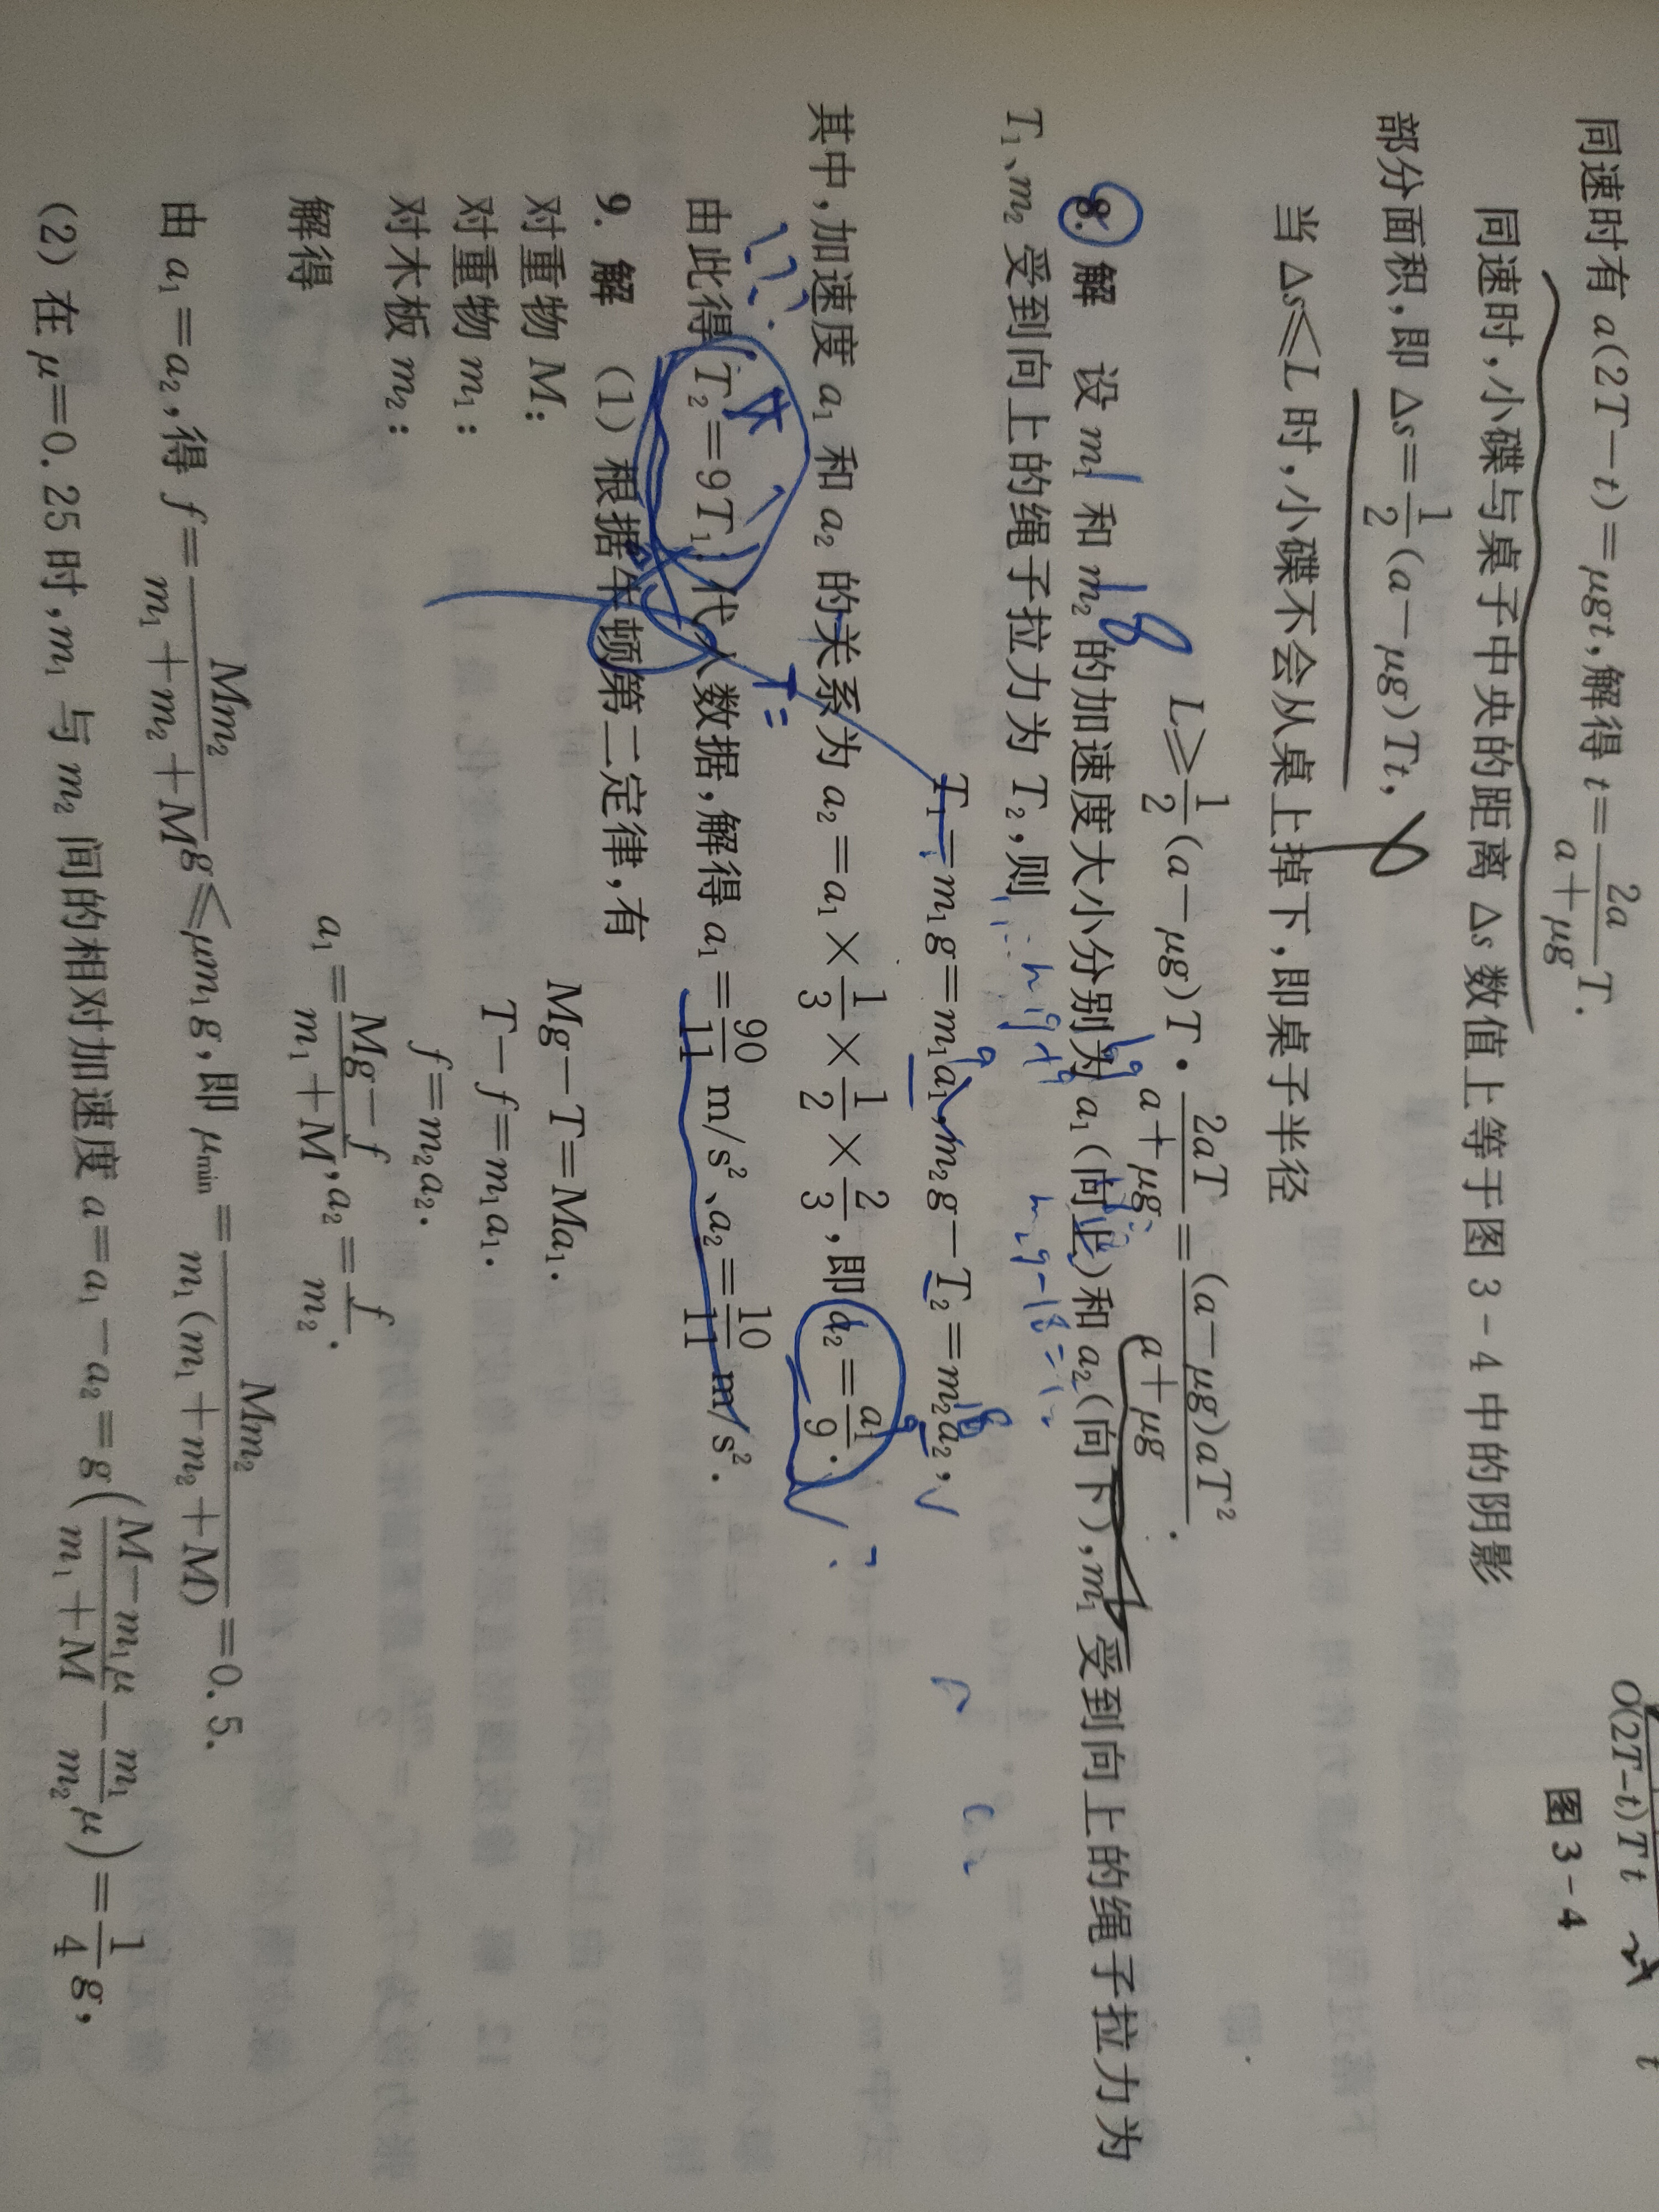 同速时有 a(2T−t)=μgt,解得 t=\frac{2a}{a+μg}T.
同速时,小碟与桌子中央的距离 Δs 数值上等于图 3-4 中的阴影
部分面积,即 Δs=\frac{1}{2}(a−μg)Tt,
O (2T−t) T t t
图 3-4
当 Δs≤L 时,小碟不会从桌上掉下,即桌子半径
L≥\frac{1}{2}(a−μg)T·\frac{2aT}{a+μg}=\frac{(a−μg)aT²}{a+μg}.
8. 解 设 m₁ 和 m₂ 的加速度大小分别为 a₁(向上)和 a₂(向下),m₁ 受到向上的绳子拉力为
T₁、m₂ 受到向上的绳子拉力为 T₂,则
T₁−m₁g=m₁a₁,m₂g−T₂=m₂a₂,
其中,加速度 a₁ 和 a₂ 的关系为 a₂=a₁×\frac{1}{3}×\frac{1}{2}×\frac{2}{3},即 a₂=\frac{a₁}{9}.
T=
由此得 T₂=9T₁,代入数据,解得 a₁=\frac{90}{11} m/s²、a₂=\frac{10}{11} m/s².
9. 解 (1)根据牛顿第二定律,有
对重物 M: Mg−T=Ma₁.
对重物 m₁: T−f=m₁a₁.
对木板 m₂: f=m₂a₂.
解得 a₁=\frac{Mg−f}{m₁+M},a₂=\frac{f}{m₂}.
由 a₁=a₂,得 f=\frac{Mm₂}{m₁+m₂+M}g≤μm₁g,即 μ_{min}=\frac{Mm₂}{m₁(m₁+m₂+M)}=0.5.
(2)在 μ=0.25 时,m₁ 与 m₂ 间的相对加速度 a=a₁−a₂=g(\frac{M−m₁μ}{m₁+M}−\frac{m₁}{m₂}μ)=\frac{1}{4}g,